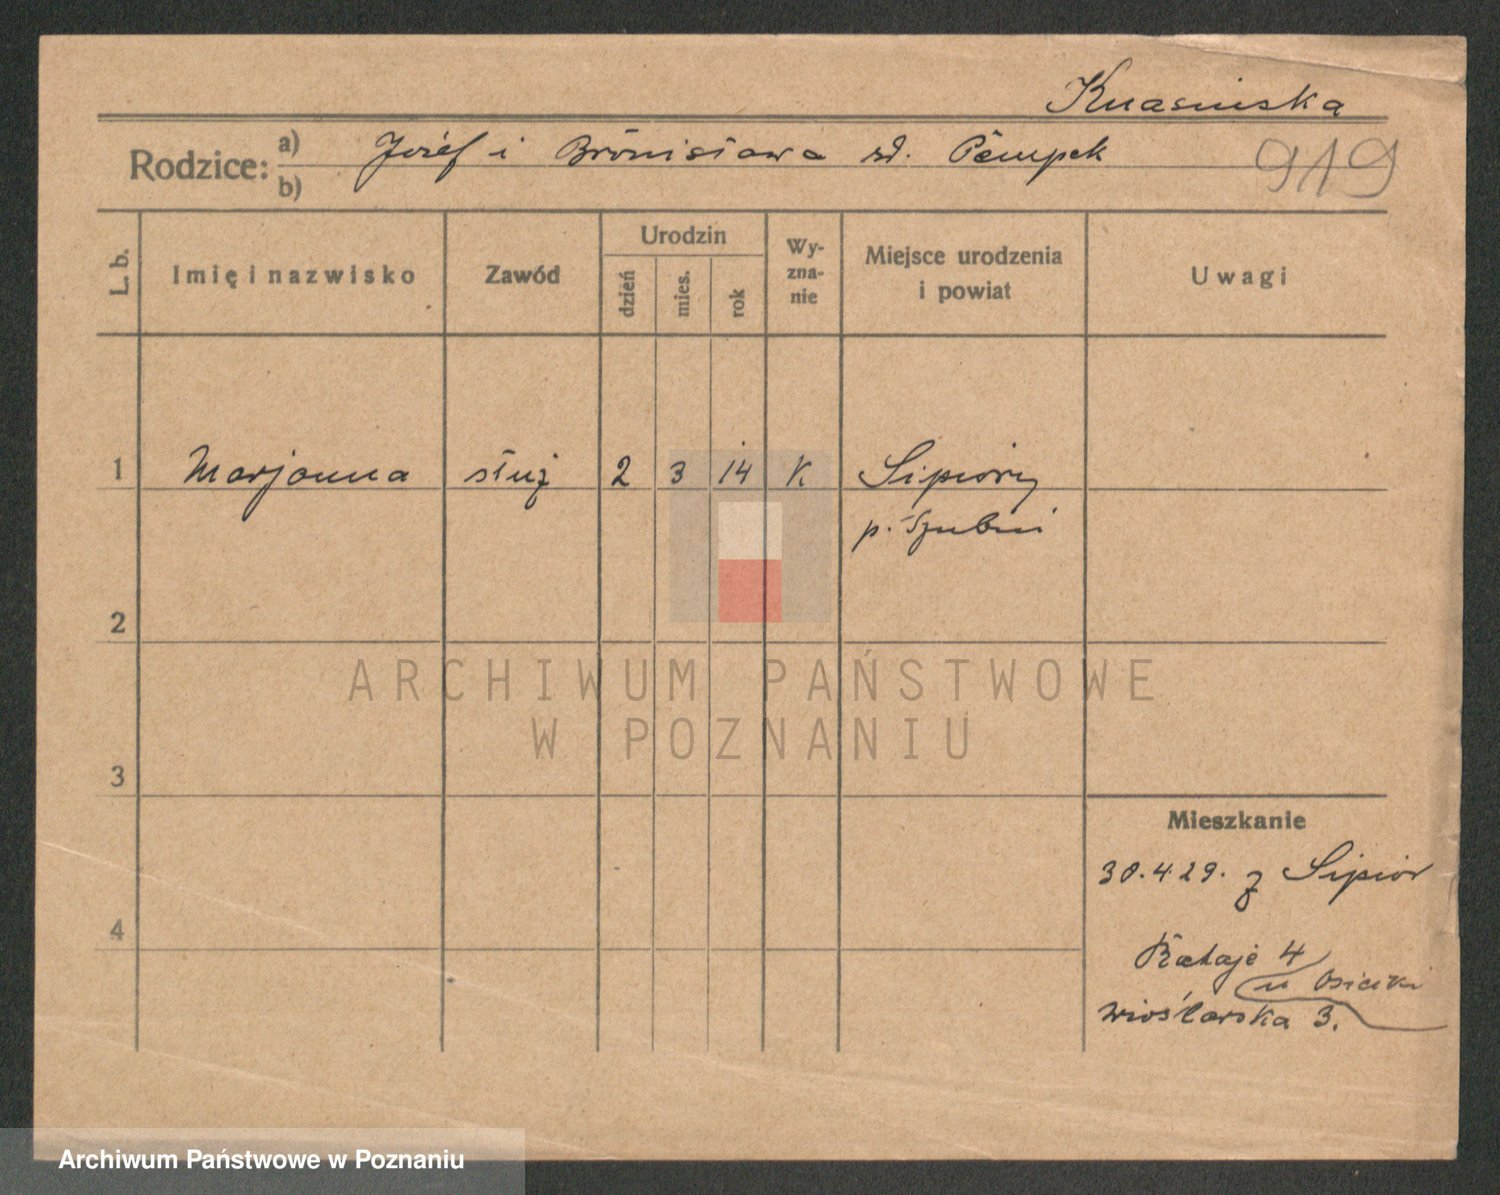 Knasinska
Rodzice: a) Józef i Bronisława zd. Pempek
b)
919
L. b.
Imię i nazwisko
Zawód
Urodzin
dzień
mies.
rok
Wy-
zna-
nie
Miejsce urodzenia
i powiat
Uwagi
1 Marjanna służ 2 3 14 K Sipiory
p. Szubin
2
ARCHIWUM PAŃSTWOWE
W POZNANIU
3
Mieszkanie
30.4.29. z Sipior
4
Rataje 4
u
Wioślarska 3.
Archiwum Państwowe w Poznaniu